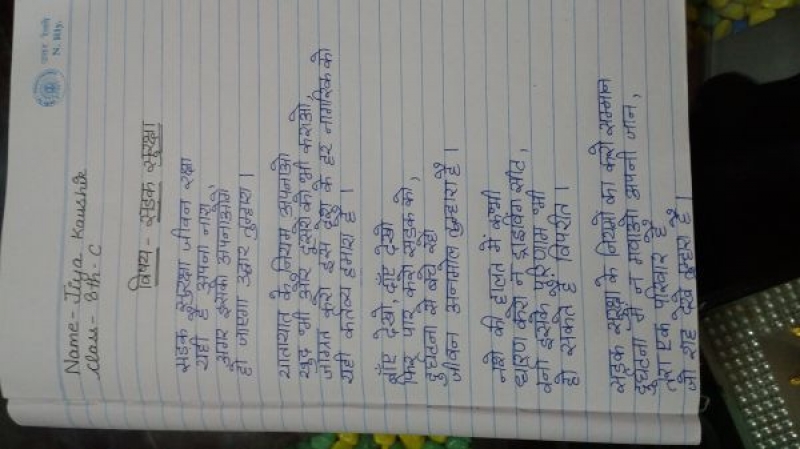 उत्तर रेलवे
N. Rly.
Name- Jiya Kaushik
class- 8th-C
विषय - सड़क सुरक्षा
सड़क सुरक्षा जीवन रक्षा
यही है अपना नारा,
अगर इसको अपनाओगे
हो जाएगा उद्धार तुम्हारा।
यातायात के नियम अपनाओ
खुद भी और दूसरों को भी कराओ,
जाग्रत करो इस देश के हर नागरिक को
यही कर्तव्य हमारा है।
बाँए देखो, दाँए देखो
फिर पार करो सड़क को,
दुर्घटना से बचे रहो
जीवन अनमोल तुम्हारा है।
नशे की हालत में कभी
धारण करो न ड्राइविंग सीट,
वर्ना इसके परिणाम भी
हो सकते है विपरीत।
सड़क सुरक्षा के नियमों का करो सम्मान
दुर्घटना में न गवाओ अपनी जान,
तेरा एक परिवार है
जो राह देखे तुम्हारा है।